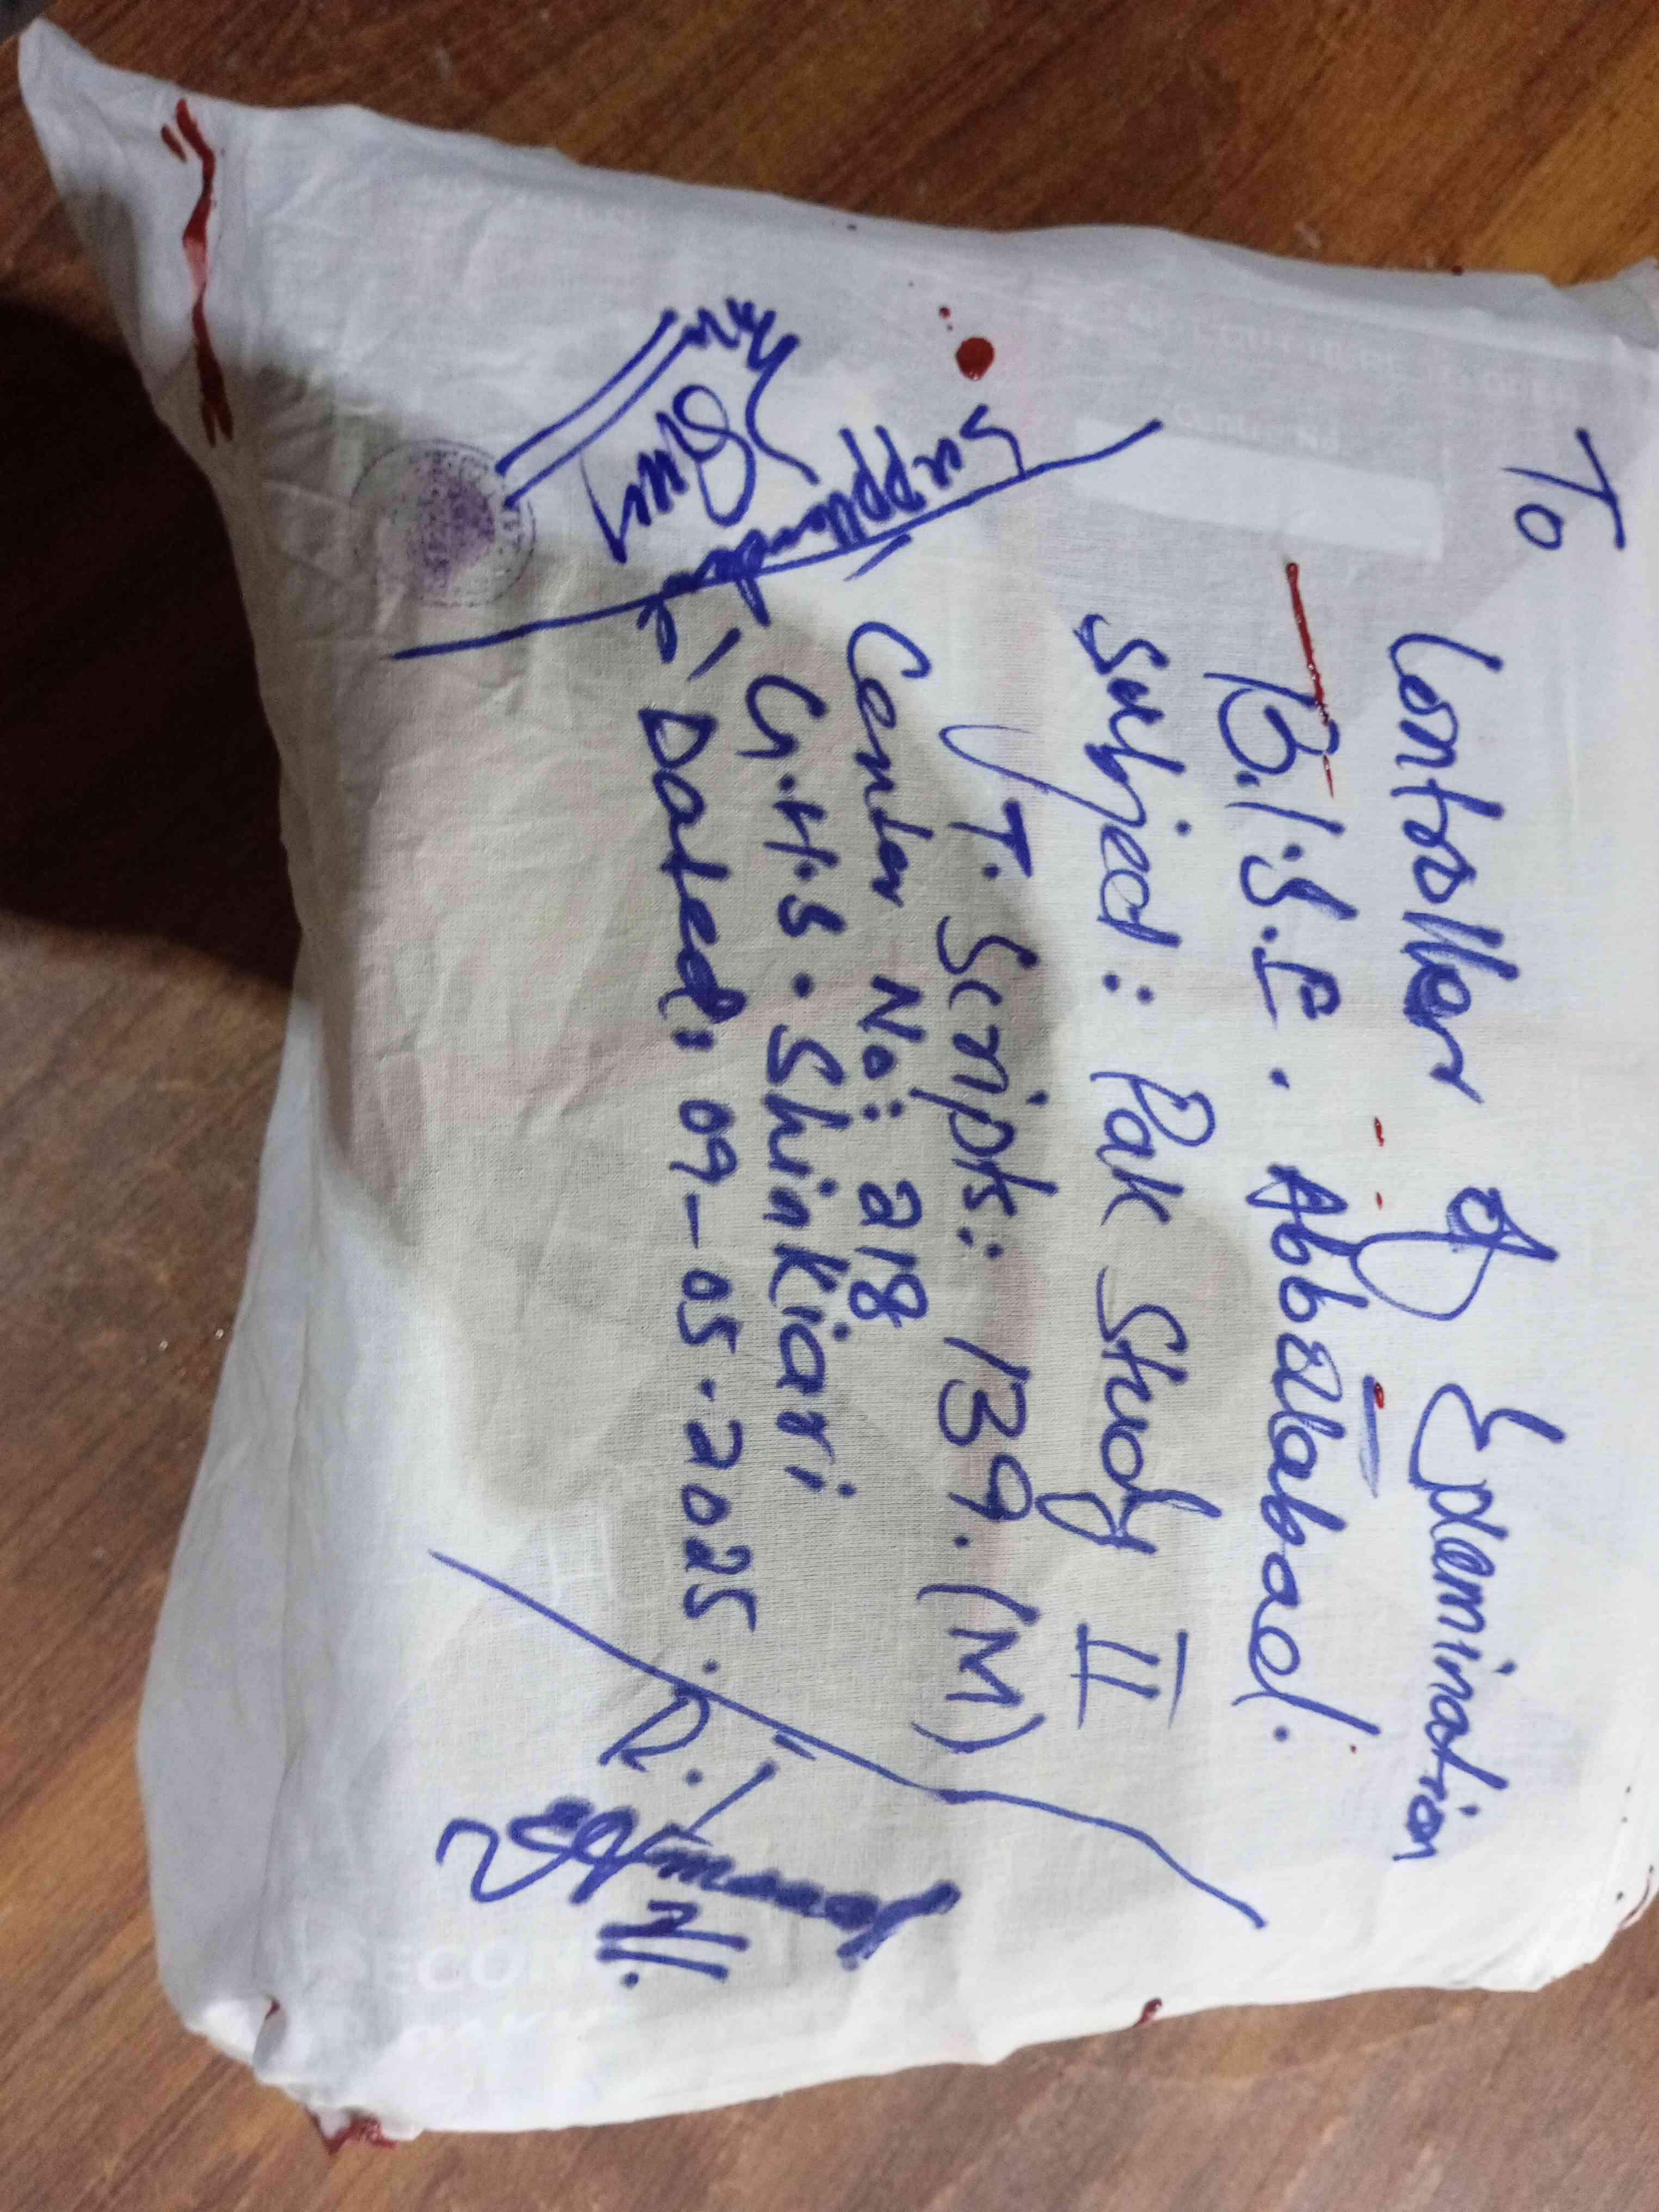 To
Controller of Examination
B.I.S.E. Abbottabad.
Subject: Pak Study II
T. Scripts: 139. (M)
Center No: 218
G.H.S. Shinkiari
Dated: 09-05-2025.
D.I